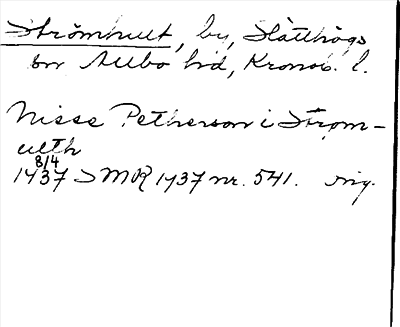 Strömhult, by, Slätthögs
sn Allbo hd, Kronob. l.
Nisse Petherson i Strøm-
ulth
8/4
1437 SMR 1437 nr. 541. orig.